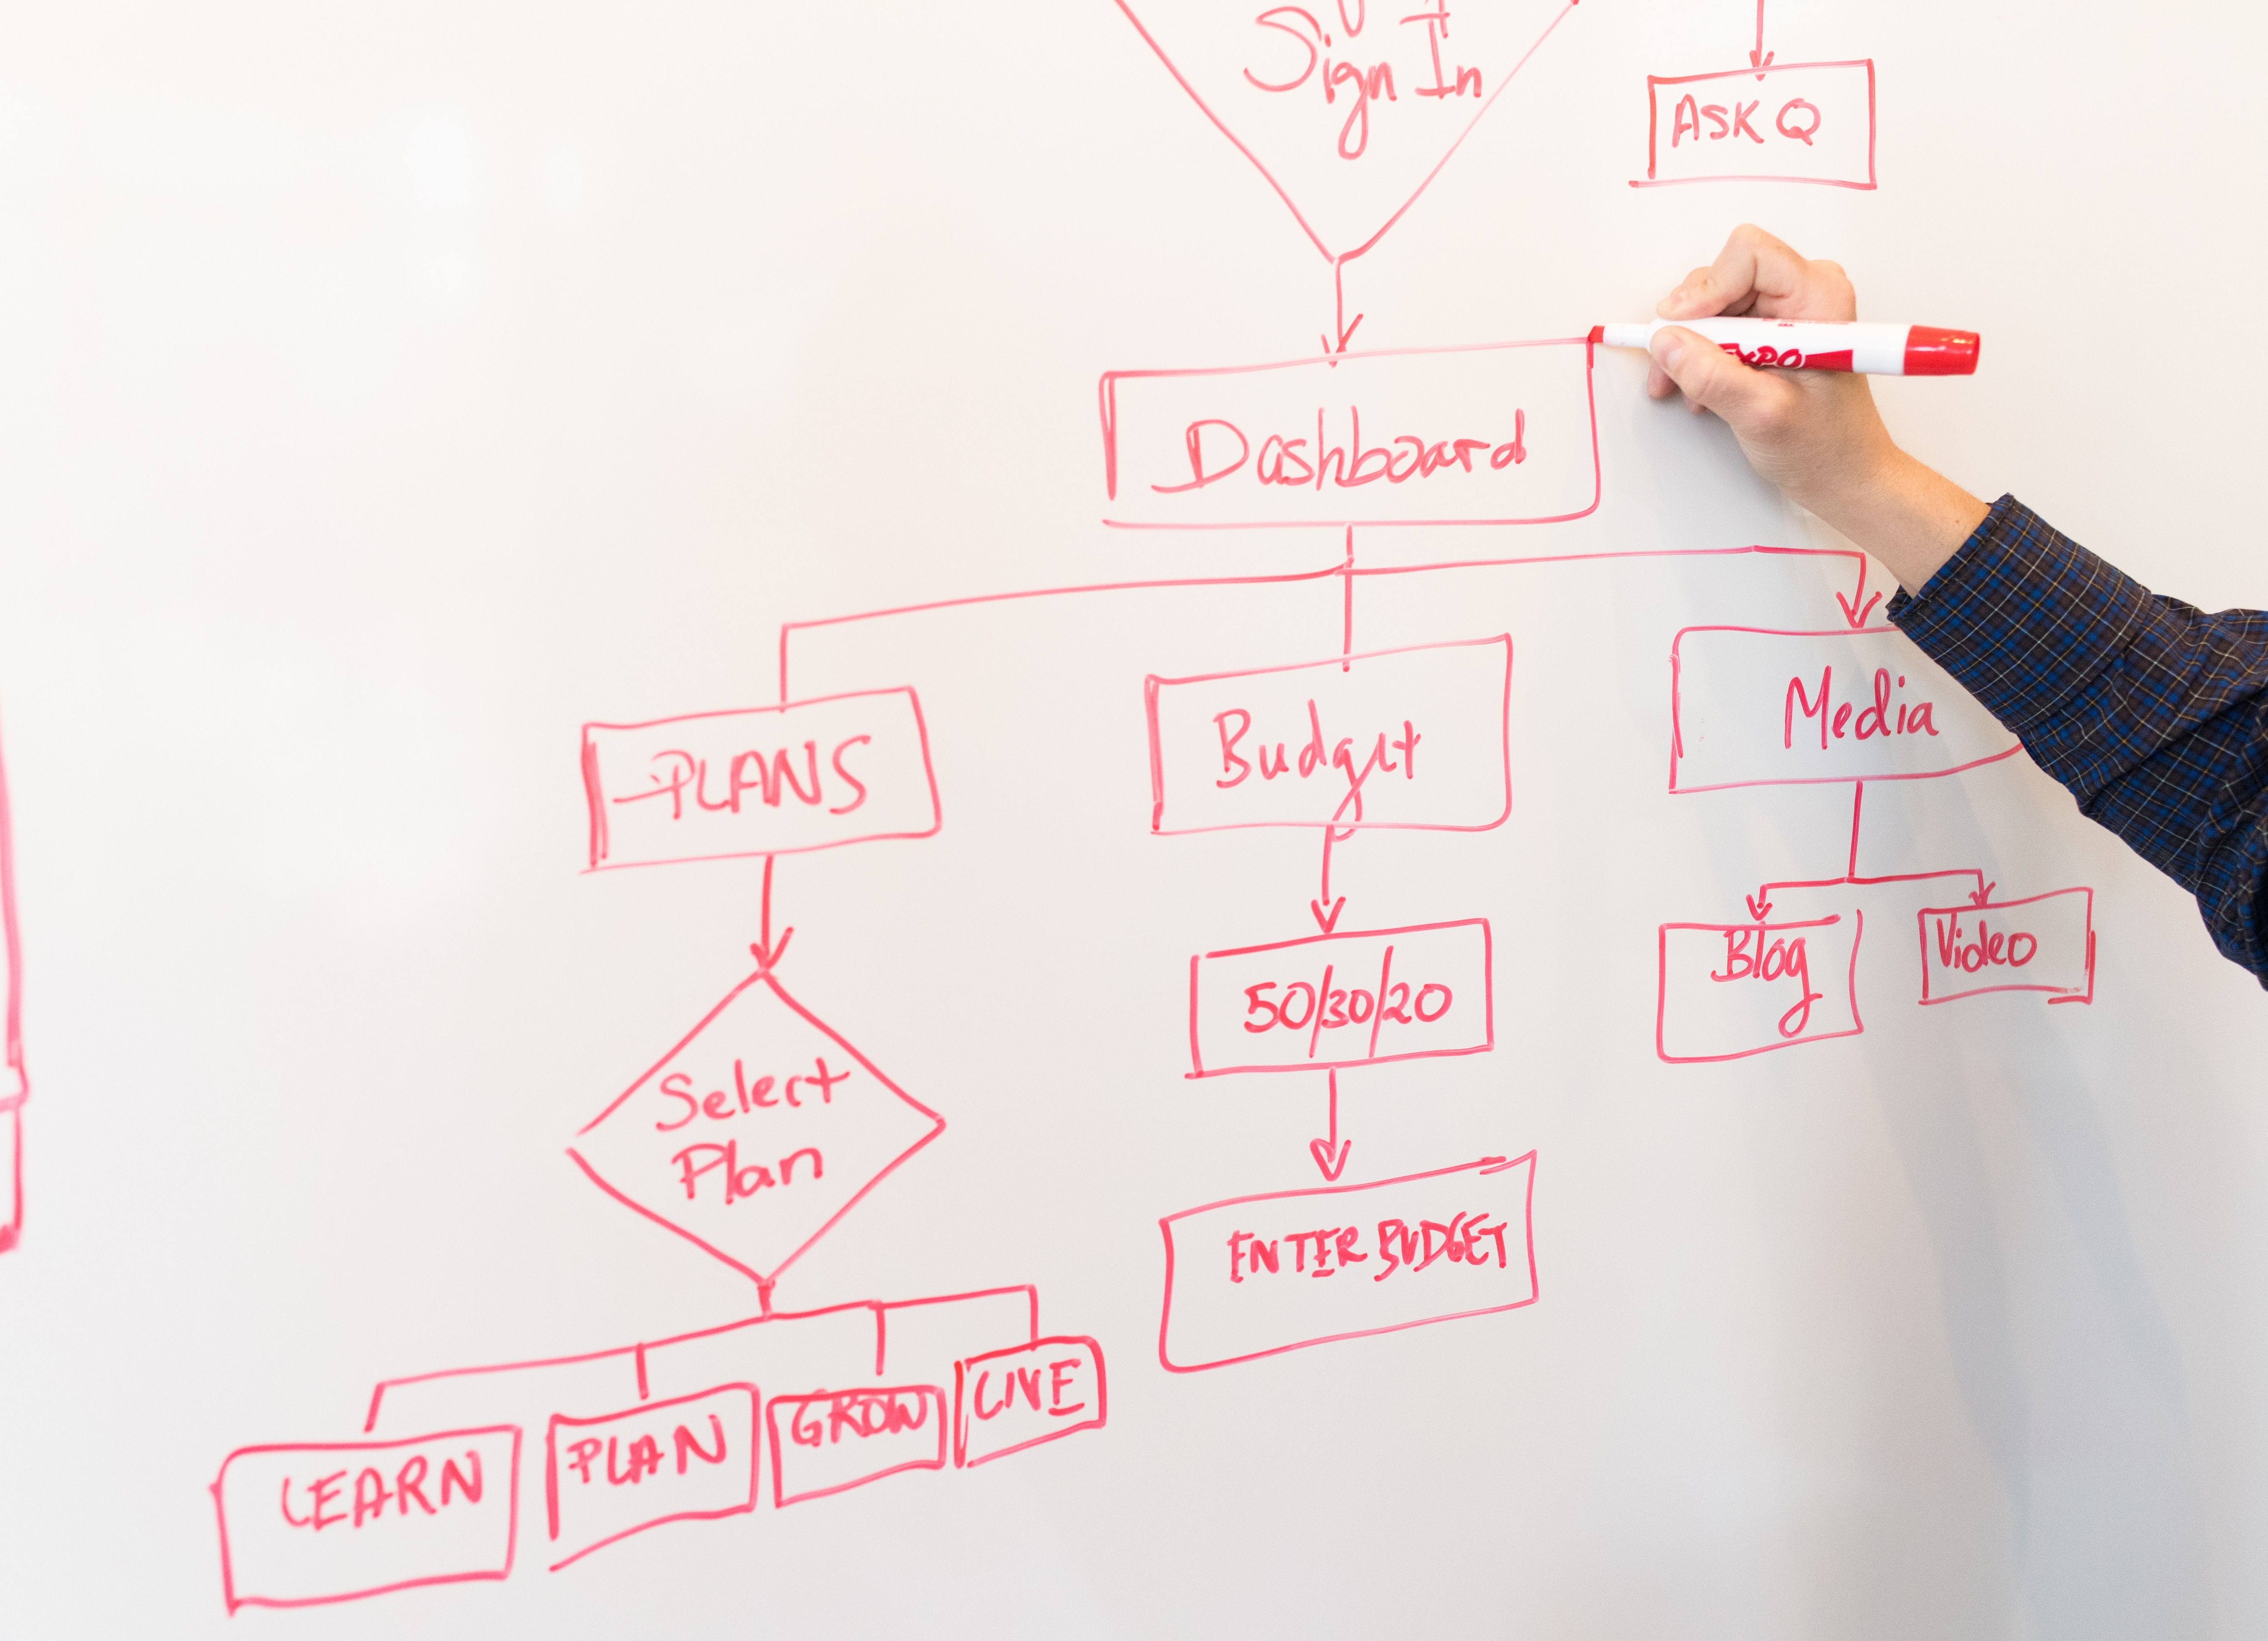 Sign In
ASK Q
EXPO
Dashboard
PLANS
Budget
Media
Select
Plan
50/30/20
Blog
Video
ENTER BUDGET
LEARN
PLAN
GROW
LIVE